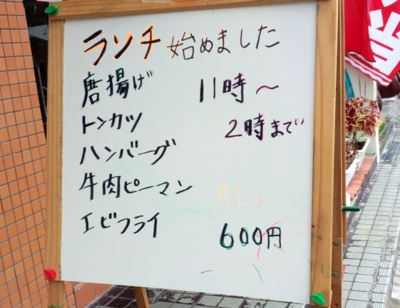 ランチ 始めました
唐揚げ 11時〜
トンカツ 2時まで
ハンバーグ
牛肉ピーマン ALL
エビフライ 600円